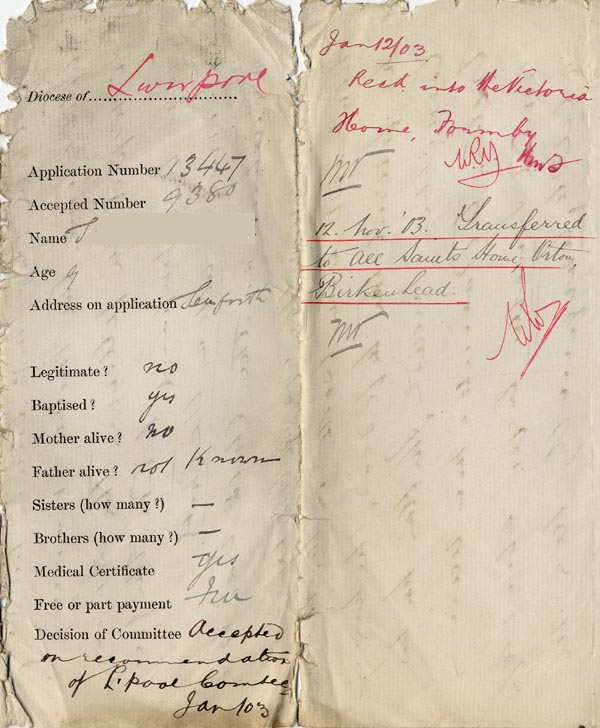 Diocese of Liverpool
Application Number 13447
Accepted Number 9380
Name J
Age 9
Address on application Seaforth
Legitimate? no
Baptised? yes
Mother alive? no
Father alive? not known
Sisters (how many?) —
Brothers (how many?) —
Medical Certificate yes
Free or part payment Free
Decision of Committee Accepted
on recommendation
of L'pool Comtee
Jan 103
Jan 12/03
Recd into the Victoria
Home, Formby
12. Nov. '03. Transferred
to All Saints Home, Oxton,
Birkenhead.